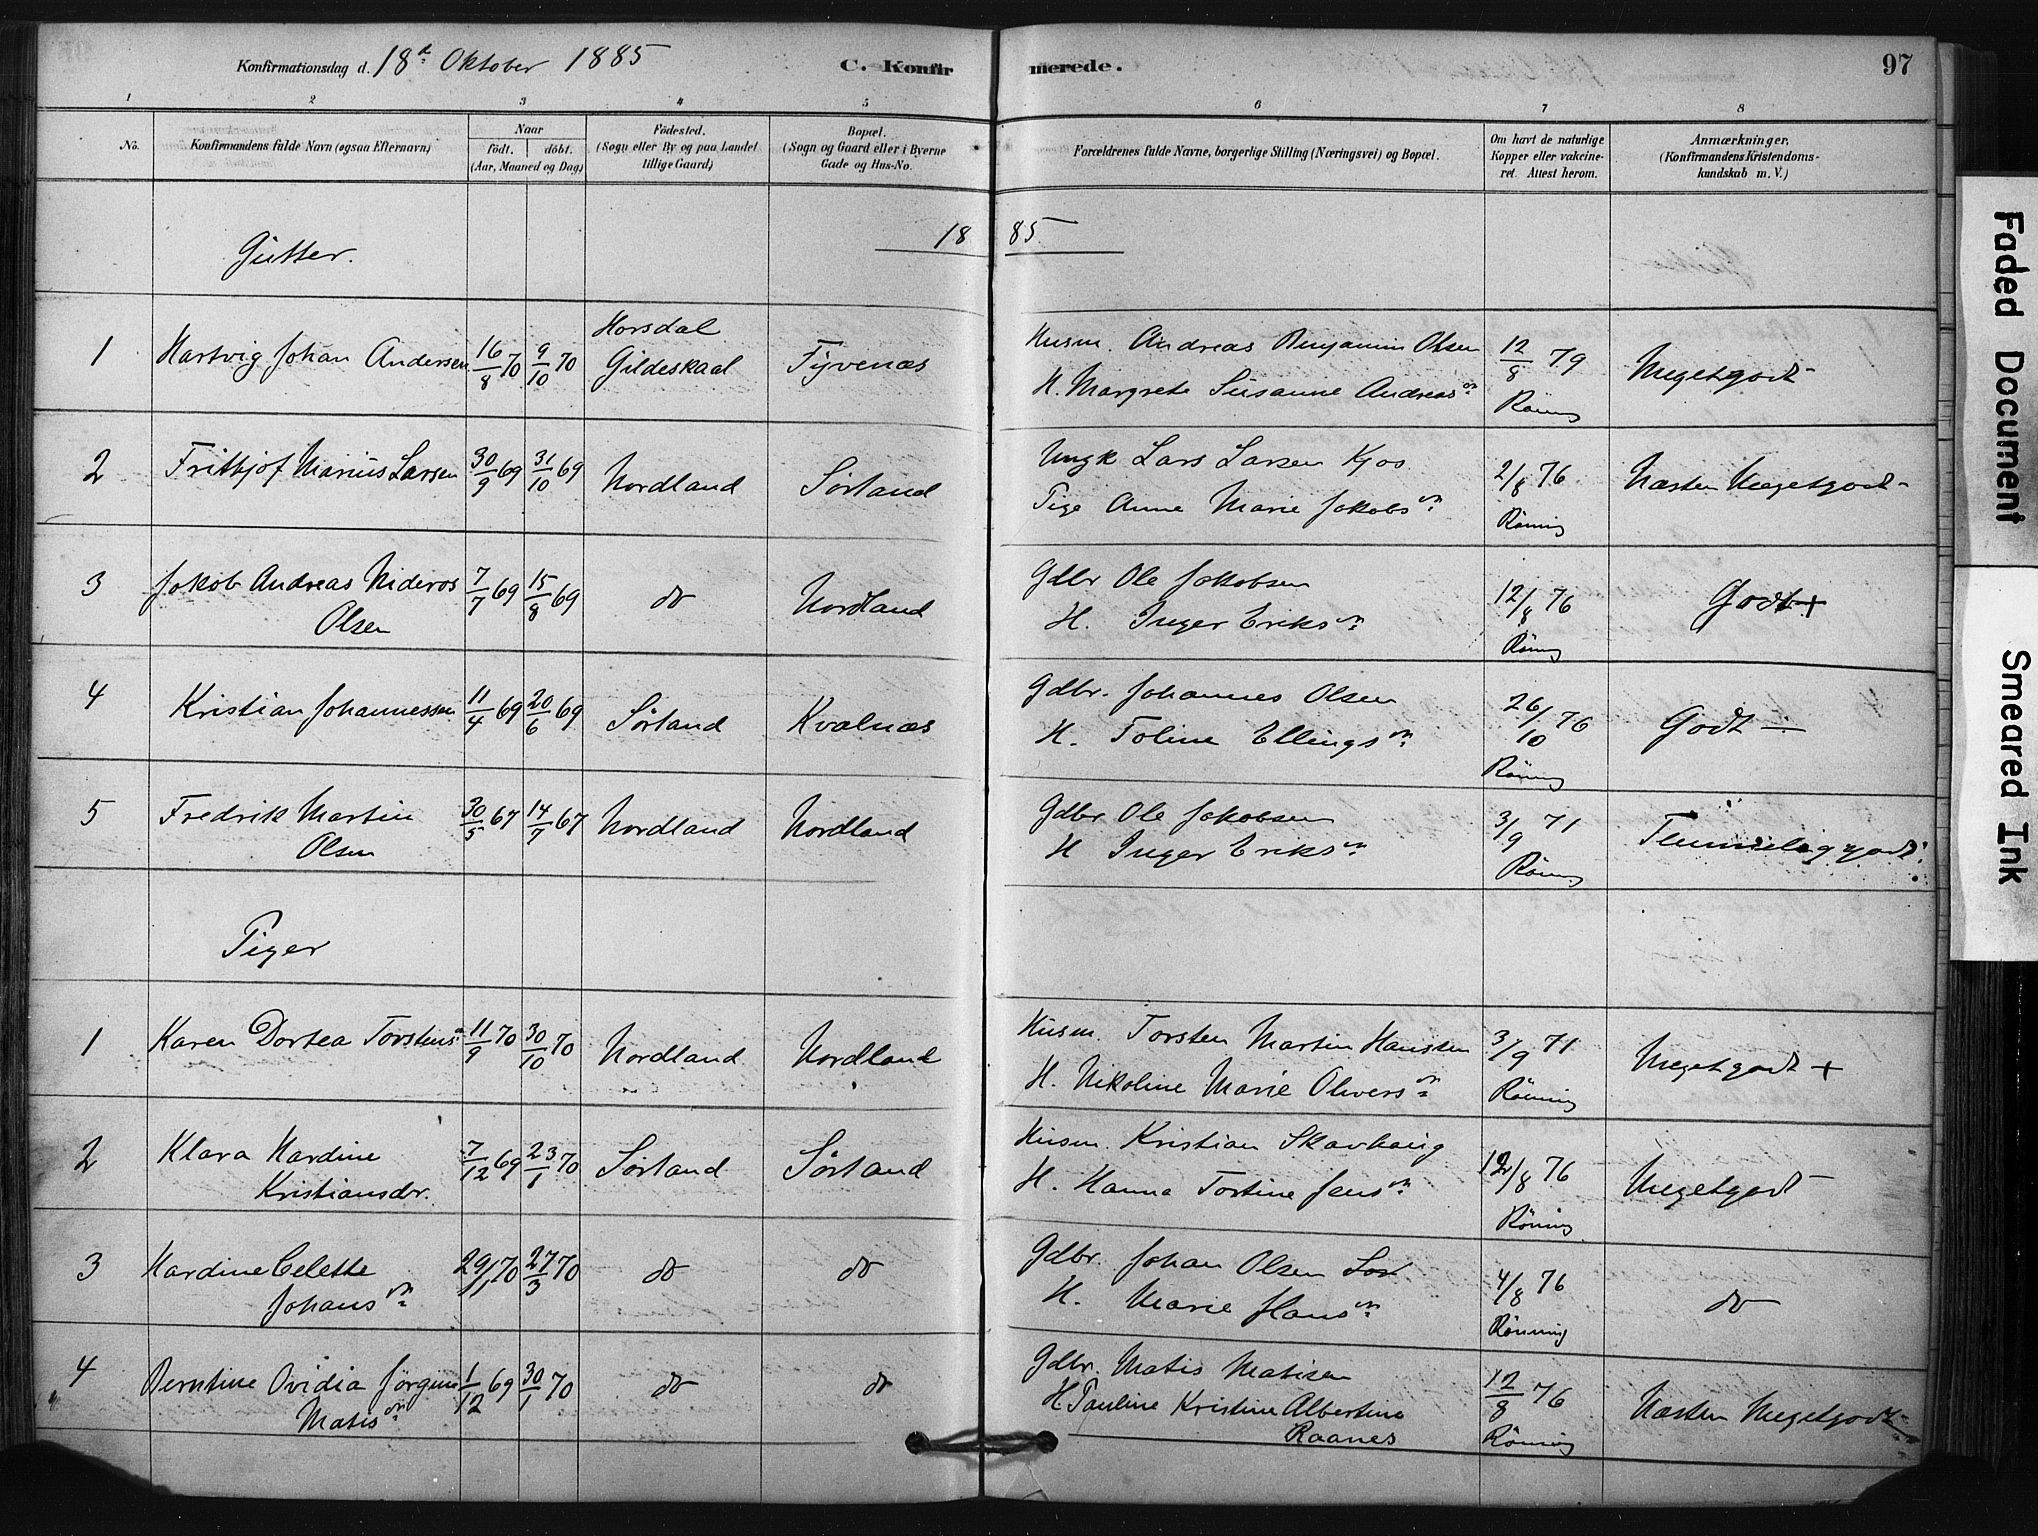 Konfirmationsdag d. 18d Oktober 1885
C. Konfirmerede.
97
1 2 3 4 5 6 7 8
No.
Konfirmandens fulde Navn (ogsaa Efternavn)
Naar
født. døbt.
(Aar, Maaned og Dag)
Fødested.
(Sogn eller By og paa Landet
tillige Gaard)
Bopæl.
(Sogn og Gaard eller i Byerne
Gade og Hus-No.
Forældrenes fulde Navne, borgerlige Stilling (Næringsvei) og Bopæl.
Om havt de naturlige
Kopper eller vakcine-
ret. Attest herom.
Anmærkninger.
(Konfirmandens Kristendoms-
kundskab m. V.)
1885
Gutter.
1 Hartvig Johan Andersen 16/8 70 9/10 70
Horsdal
Gildeskaal
Tyvenæs
Husm. Andreas Benjamin Olsen
H. Margrete Susanne Andreasdn
12/8 79
Røning
Megetgodt -
2 Fritbjof Marius Larsen 30/9 69 31/10 69 Nordland Sørland
Ungk Lars Larsen Kjos
Pige Anne Marie Jakobsdn
2/8 76
Røning
Næsten Megetgodt -
3 Jakob Andreas Nideros
Olsen
7/7 69 15/8 69 do Nordland
Gdbr Ole Jakobsen
H. Inger Eriksdn
12/8 76
Røning
Godt +
4 Kristian Johannessen 11/4 69 20/6 69 Sørland Kvalnæs
Gdbr. Johannes Olsen
H. Toline Ellingsdn
26/10 76
Røning
Godt ÷
5 Fredrik Martin
Olsen
30/5 67 14/7 67 Nordland Nordland
Gdbr Ole Jakobsen
H Inger Eriksdn
3/9 71
Røning
Temmelig godt
Piger
1 Karen Dortea Torstens 11/9 70 30/10 70 Nordland Nordland
Husm. Torsten Martin Hansten
H. Nikoline Marie Oliversdn
3/9 71
Røning
Megetgodt +
2 Klara Hardine
Kristiansdr.
7/12 69 23/1 70 Sørland Sørland
Husm. Kristian Skavhaug
H. Hanna Tortine Jensdn
12/8 76
Røning
Megetgodt -
3 Hardine Celette
Johansdn
29/1 70 27/3 70 do do
Gdbr. Johan Olsen
H. Marie Hansdn
4/8 76
Rønning
do
4 Berntine Ovidia Jørgine
Matisdn
1/12 69 30/1 70 do do
Gdbr. Matis Matisen
H Pauline Kristine Albertine
Raanes
12/8 76
Røning
Næsten Megetgodt -
Faded Document
Smeared Ink